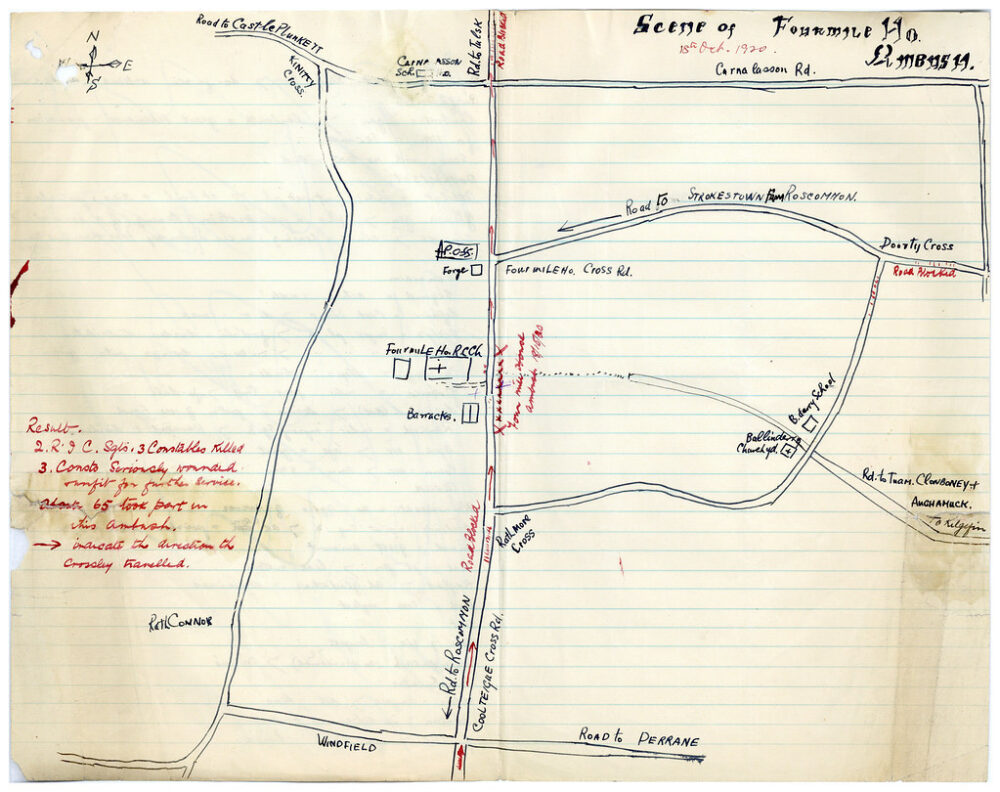 Scene of Fourmile Ho.
Ambush.
18th Oct. 1920.
Road to Castle Plunkett
N
E
Kinitty
Cross.
Carnalasson
Rd. to Tulsk
Road Blocked
Carnalasson Rd.
Road to Strokestown from Roscommon.
Doorty Cross
Road Blocked
Forge
Fourmile Ho. Cross Rd.
Fourmile Ho. R.C. Ch
Four Mile House
Ambush
Barracks.
School
Church yd.
Rd. to Tuam. Clooboney +
Aughamuck.
To Kilgefin
Result.
2. R. I C. Sgts. 3 Constables Killed
3. Consts Seriously wounded
unfit for further service.
About 65 took part in
this Ambush.
→ indicate the direction the
Crossley travelled.
Road Blocked
Rathmore
Cross
Rath Connor
Rd. to Roscommon
Coolteigue Cross Rd.
Windfield
Road to Perrane